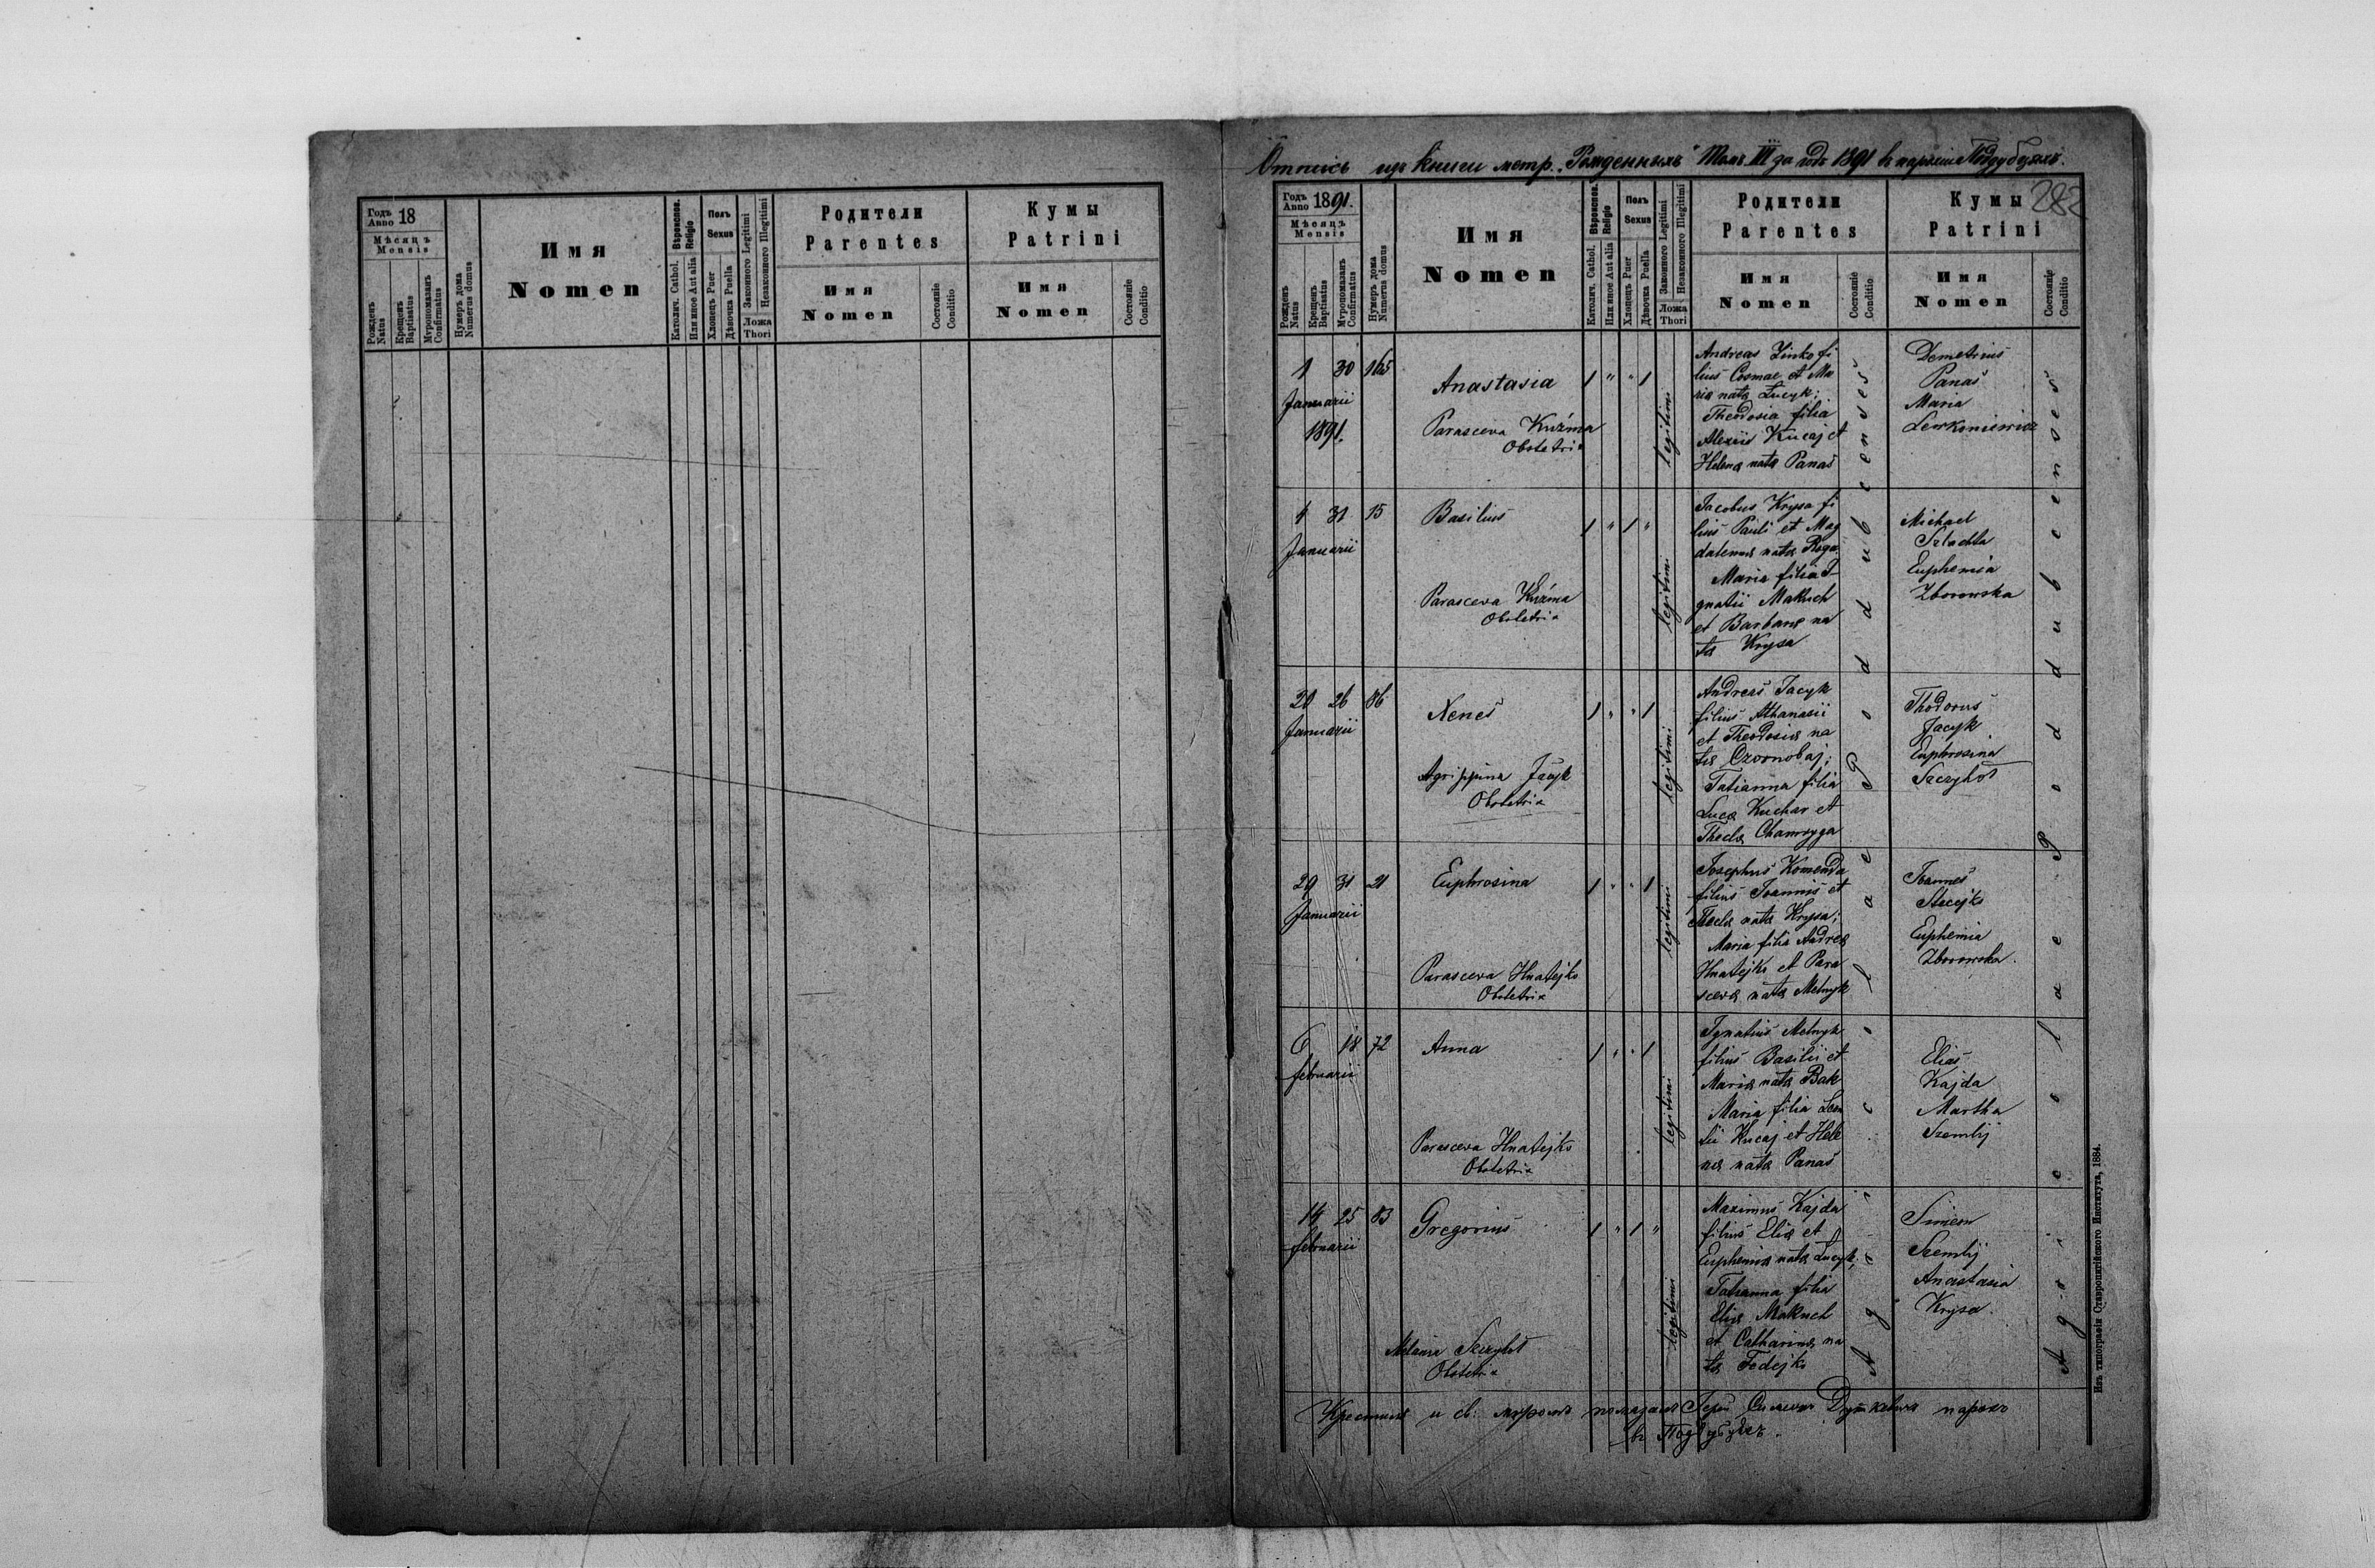 Годъ Anno 18
Мѣсяцъ
Mensis
Рожденъ Natus
Крещенъ Baptisatus
Мѵропомазанъ Confirmatus
Нумеръ дома Numerus domus
Имя
Nomen
Вѣроиспов. Religio
Католич. Cathol.
Или иное Aut alia
Полъ
Sexus
Хлопецъ Puer
Дѣвочка Puella
Законного Legitimi
Незаконного Illegitimi
Ложа
Thori
Родители
Parentes
Имя
Nomen
Состояніе Conditio
Кумы
Patrini
Имя
Nomen
Состояніе Conditio
Отпись изъ книги метр. "Рожденныхъ" Томъ III за годъ 1891 въ парохіи Поддубцяхъ.
282
Годъ Anno 1891.
Мѣсяцъ
Mensis
Рожденъ Natus
Крещенъ Baptisatus
Мѵропомазанъ Confirmatus
Нумеръ дома Numerus domus
Имя
Nomen
Вѣроиспов. Religio
Католич. Cathol.
Или иное Aut alia
Полъ
Sexus
Хлопецъ Puer
Дѣвочка Puella
Законного Legitimi
Незаконного Illegitimi
Ложа
Thori
Родители
Parentes
Имя
Nomen
Состояніе Conditio
Кумы
Patrini
Имя
Nomen
Состояніе Conditio
1 30 165
Januarii
1891.
Anastasia
Parasceva Kuźma
Obstetrix
legitimi
Andreas Zinko fi
lius Cosmae et Ma
riæ natæ Lucyk;
Theodosia filia
Alexii Kucaj et
Helenæ natæ Panas
Demetrius
Panas
Maria
Lewkoniewicz
4 31 15
Januarii
Basilius
Parasceva Kuźma
Obstetrix
legitimi
Jacobus Krysa fi
lius Pauli et Mag
dalenæ natæ Roga
Maria filia I-
gnatii Makuch
et Barbaræ na
tæ Krysa
Michael
Szlachta
Euphemia
Zborowska
20 26 86
Januarii
Xenes
Agrippina Jacyk
Obstetrix
legitimi
Andreas Jacyk
filius Athanasii
et Theodosiæ na
tæ Czornobaj;
Tatianna filia
Lucæ Kuchar et
Theclæ Chamryga
Thodorus
Jacyk
Euphrosina
Szczyhoł
29 31 21
Januarii
Euphrosina
Parasceva Hnatejko
Obstetrix
legitimi
Josephus Komenda
filius Joannis et
Theclæ natæ Krysa;
Maria filia Andreæ
Hnatejko et Para
scevæ natæ Melnyk
Joannes
Stecejko
Euphemia
Zborowska.
6 18 72
februarii
Anna
Parasceva Hnatejko
Obstetrix
legitimi
Ignatius Melnyk
filius Basilii et
Mariæ natæ Bak
Maria filia Leon
tii Kucaj et Hele
næ natæ Panas
Elias
Kajda
Martha
Szemlij
14 25 83
februarii
Gregorius
Melania Szczyhoł
Obstetrix
legitimi
Maximus Kajda
filius Eliæ et
Euphemiæ natæ Lucyk;
Tatianna filia
Eliæ Makuch
et Catharinæ na
tæ Fedejko
Simeon
Szemlij
Anastasia
Krysa.
Agricolae Poddubcenses
Agricolae Poddubcenses
Крестилъ и св. мѵромъ помазалъ Іерей Симеон Дуткевич парохъ
въ Поддубцяхъ.
Изъ типографіи Ставропигійского Института, 1884.